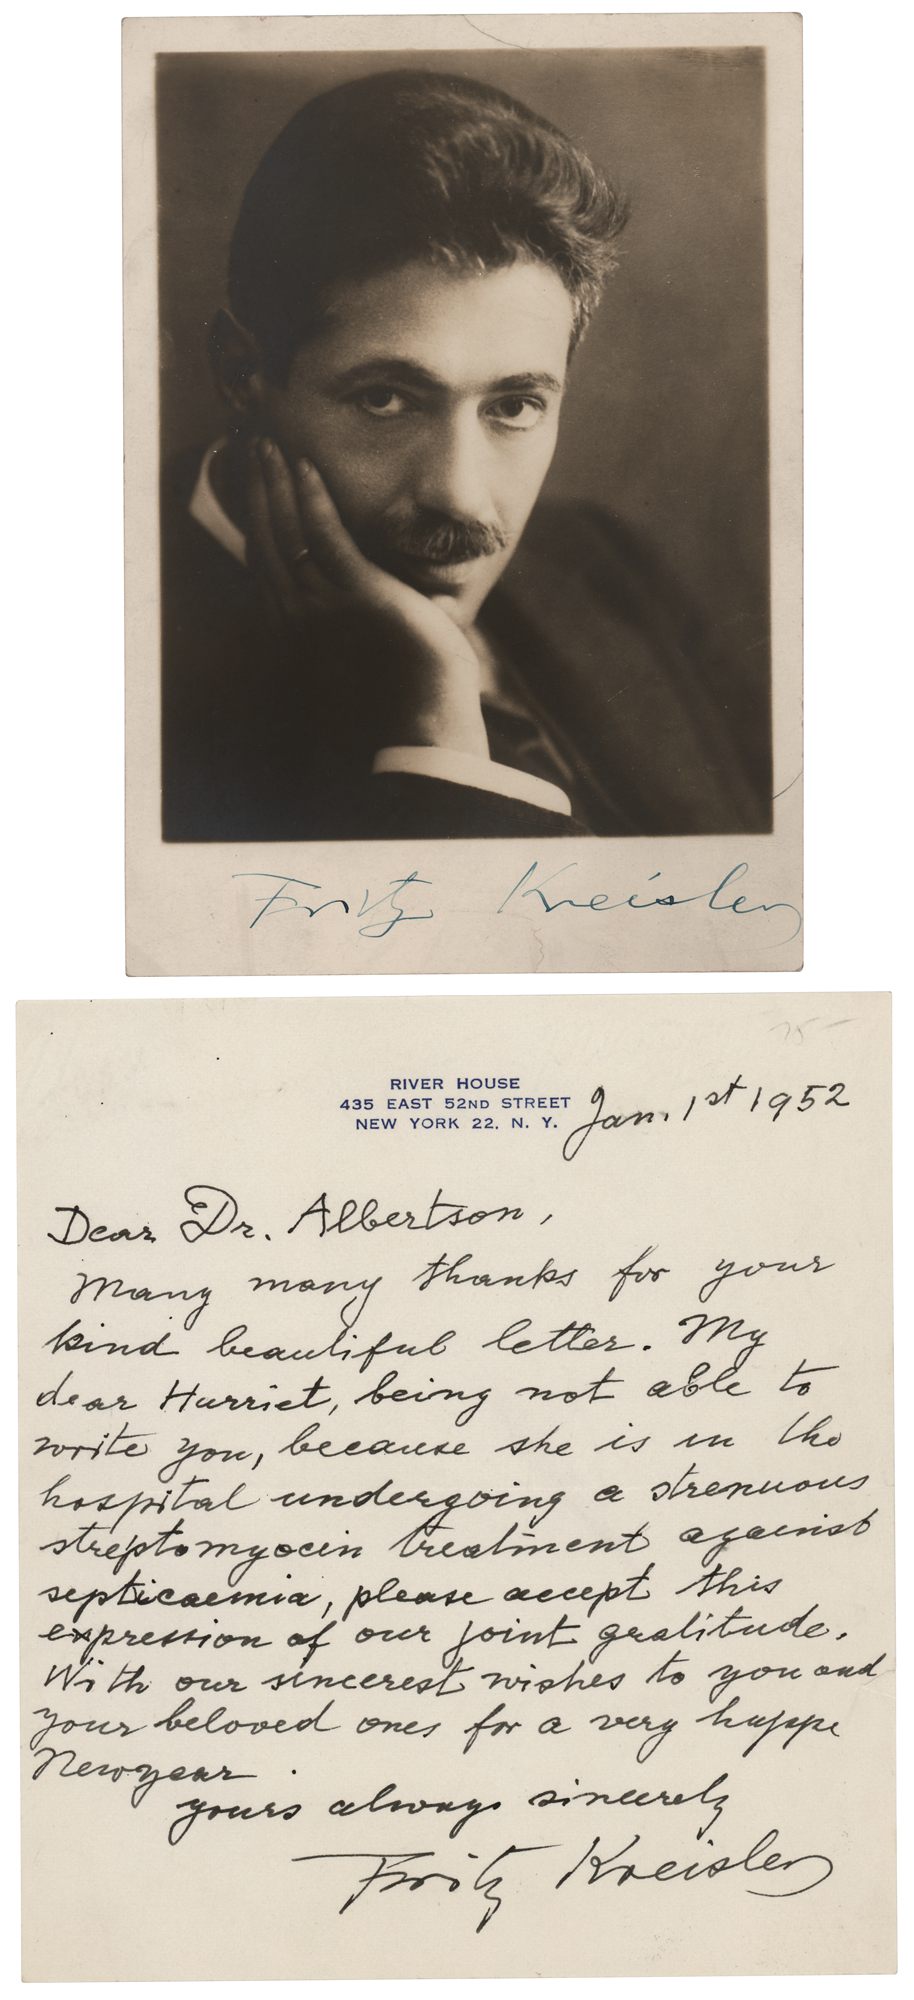 Fritz Kreisler
75-
RIVER HOUSE
435 EAST 52ND STREET
NEW YORK 22, N. Y.
Jan. 1st 1952
Dear Dr. Albertson,
Many many thanks for your
kind beautiful letter. My
dear Harriet, being not able to
write you, because she is in the
hospital undergoing a strenuous
streptomyocin treatment against
septicaemia, please accept this
expression of our joint gratitude.
With our sincerest wishes to you and
your beloved ones for a very happe
Newyear.
yours always sincerely
Fritz Kreisler